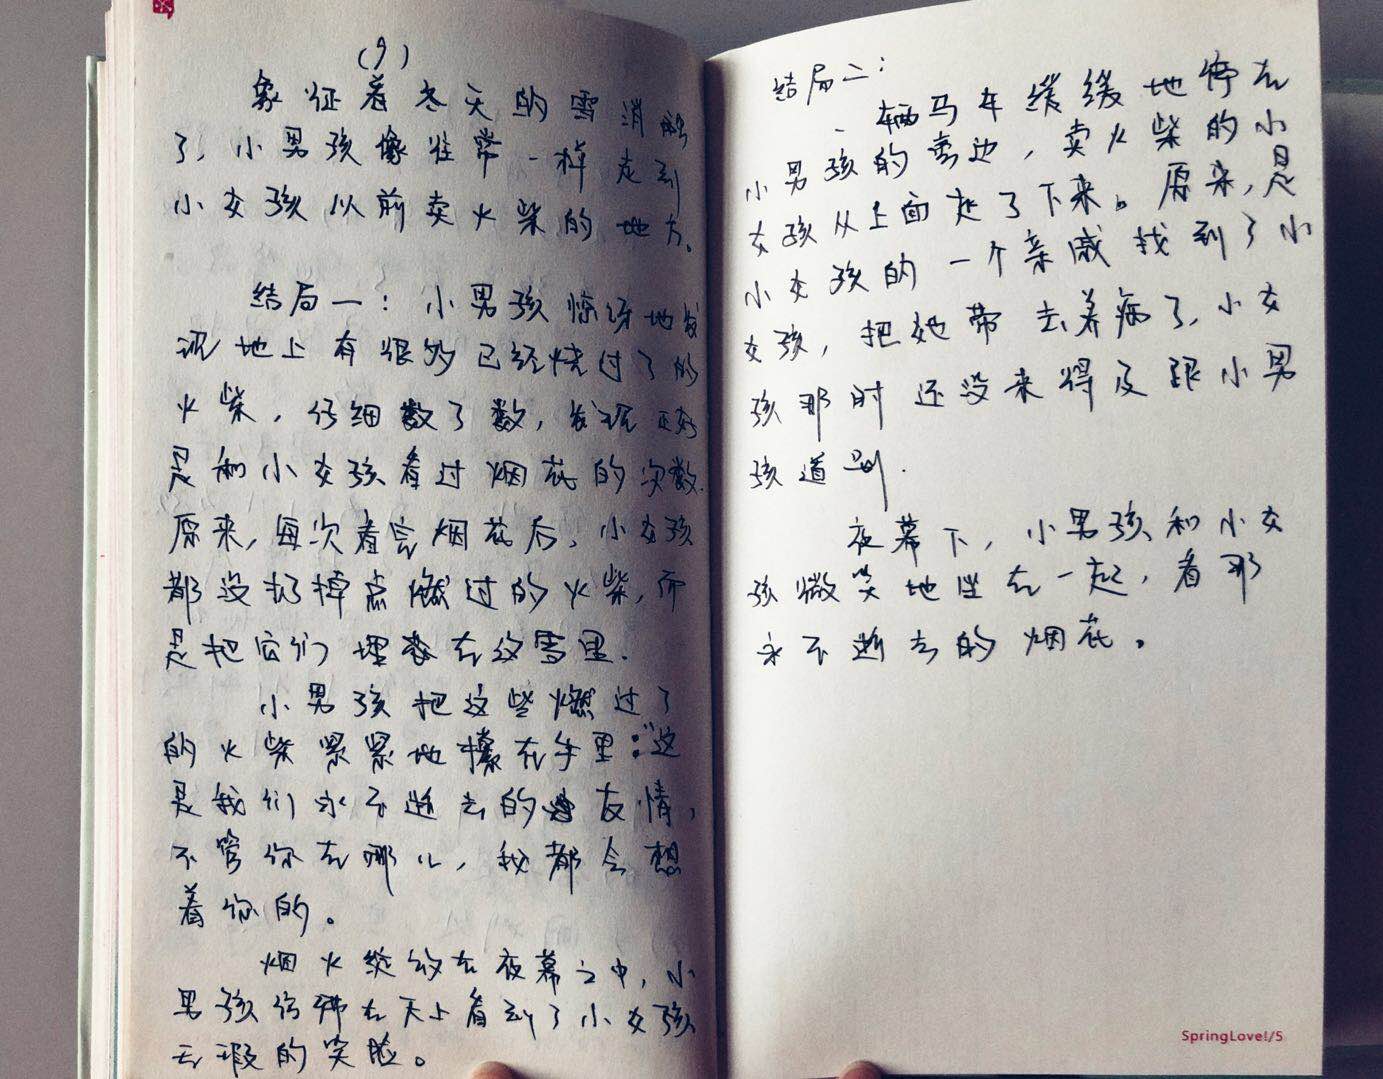 (9)
象征着冬天的雪消融
了，小男孩像往常一样走到
小女孩以前卖火柴的地方。
结局一：小男孩惊讶地发
现地上有很多已经烧过了的
火柴，仔细数了数，发现正好
是和小女孩看过烟花的次数.
原来，每次看完烟花后，小女孩
都没扔掉点燃过的火柴，而
是把它们埋在这雪里.
小男孩把这些燃过了
的火柴紧紧地攥在手里：“这
是我们永不逝去的友情，
不管你在哪儿，我都会想
着你的。
烟火绽放在夜幕之中，小
男孩仿佛在天上看到了小女孩
无瑕的笑脸。
结局二：
一辆马车缓缓地停在
小男孩的旁边，卖火柴的小
女孩从上面走了下来。原来，是
小女孩的一个亲戚找到了小
女孩，把她带去养病了，小女
孩那时还没来得及跟小男
孩道别.
夜幕下，小男孩和小女
孩微笑地坐在一起，看那
永不逝去的烟花。
SpringLove!/5